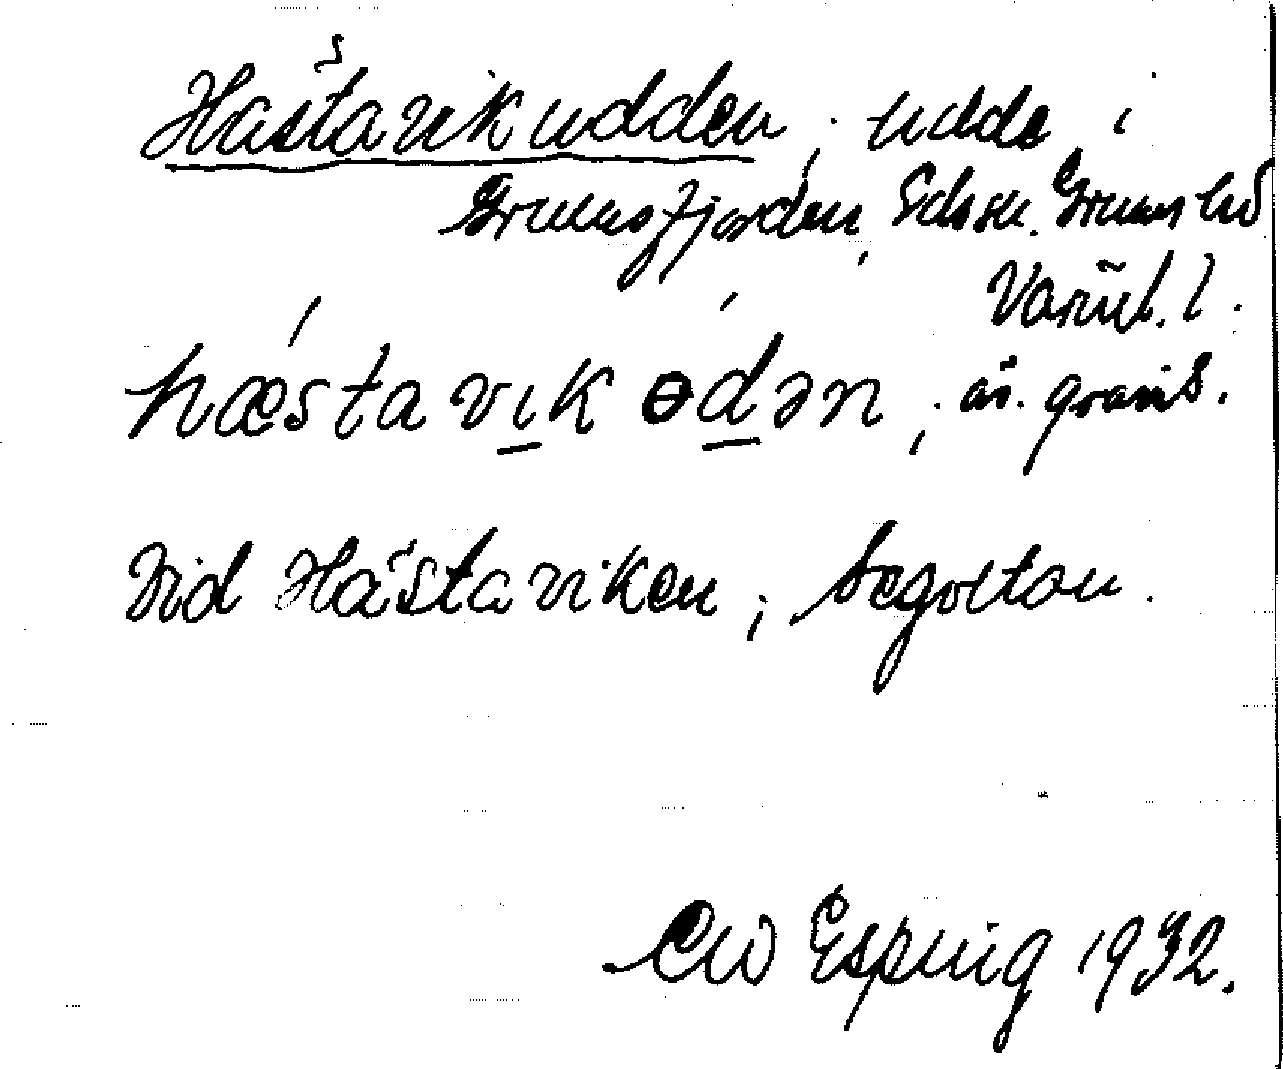 Hästavikudden, udde i
Grumsfjorden, Eds sn. Grums hd
Värml. l.
hæstavıkɵdən, äv. gravis.
Vid Hästaviken; Segoltan.
CW Esping 1932.